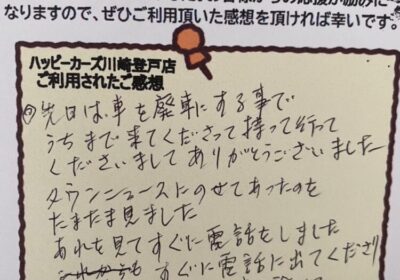 なりますので、ぜひご利用頂いた感想を頂ければ幸いです。
ハッピーカーズ川崎登戸店
ご利用されたご感想
先日は、車を廃車にする事で
うちまで来てくださって持って行って
くださいましてありがとうございました
タウンニュースにのせてあったのを
たまたま見ました
あれを見てすぐに電話をしました
すぐに電話に出てくださり